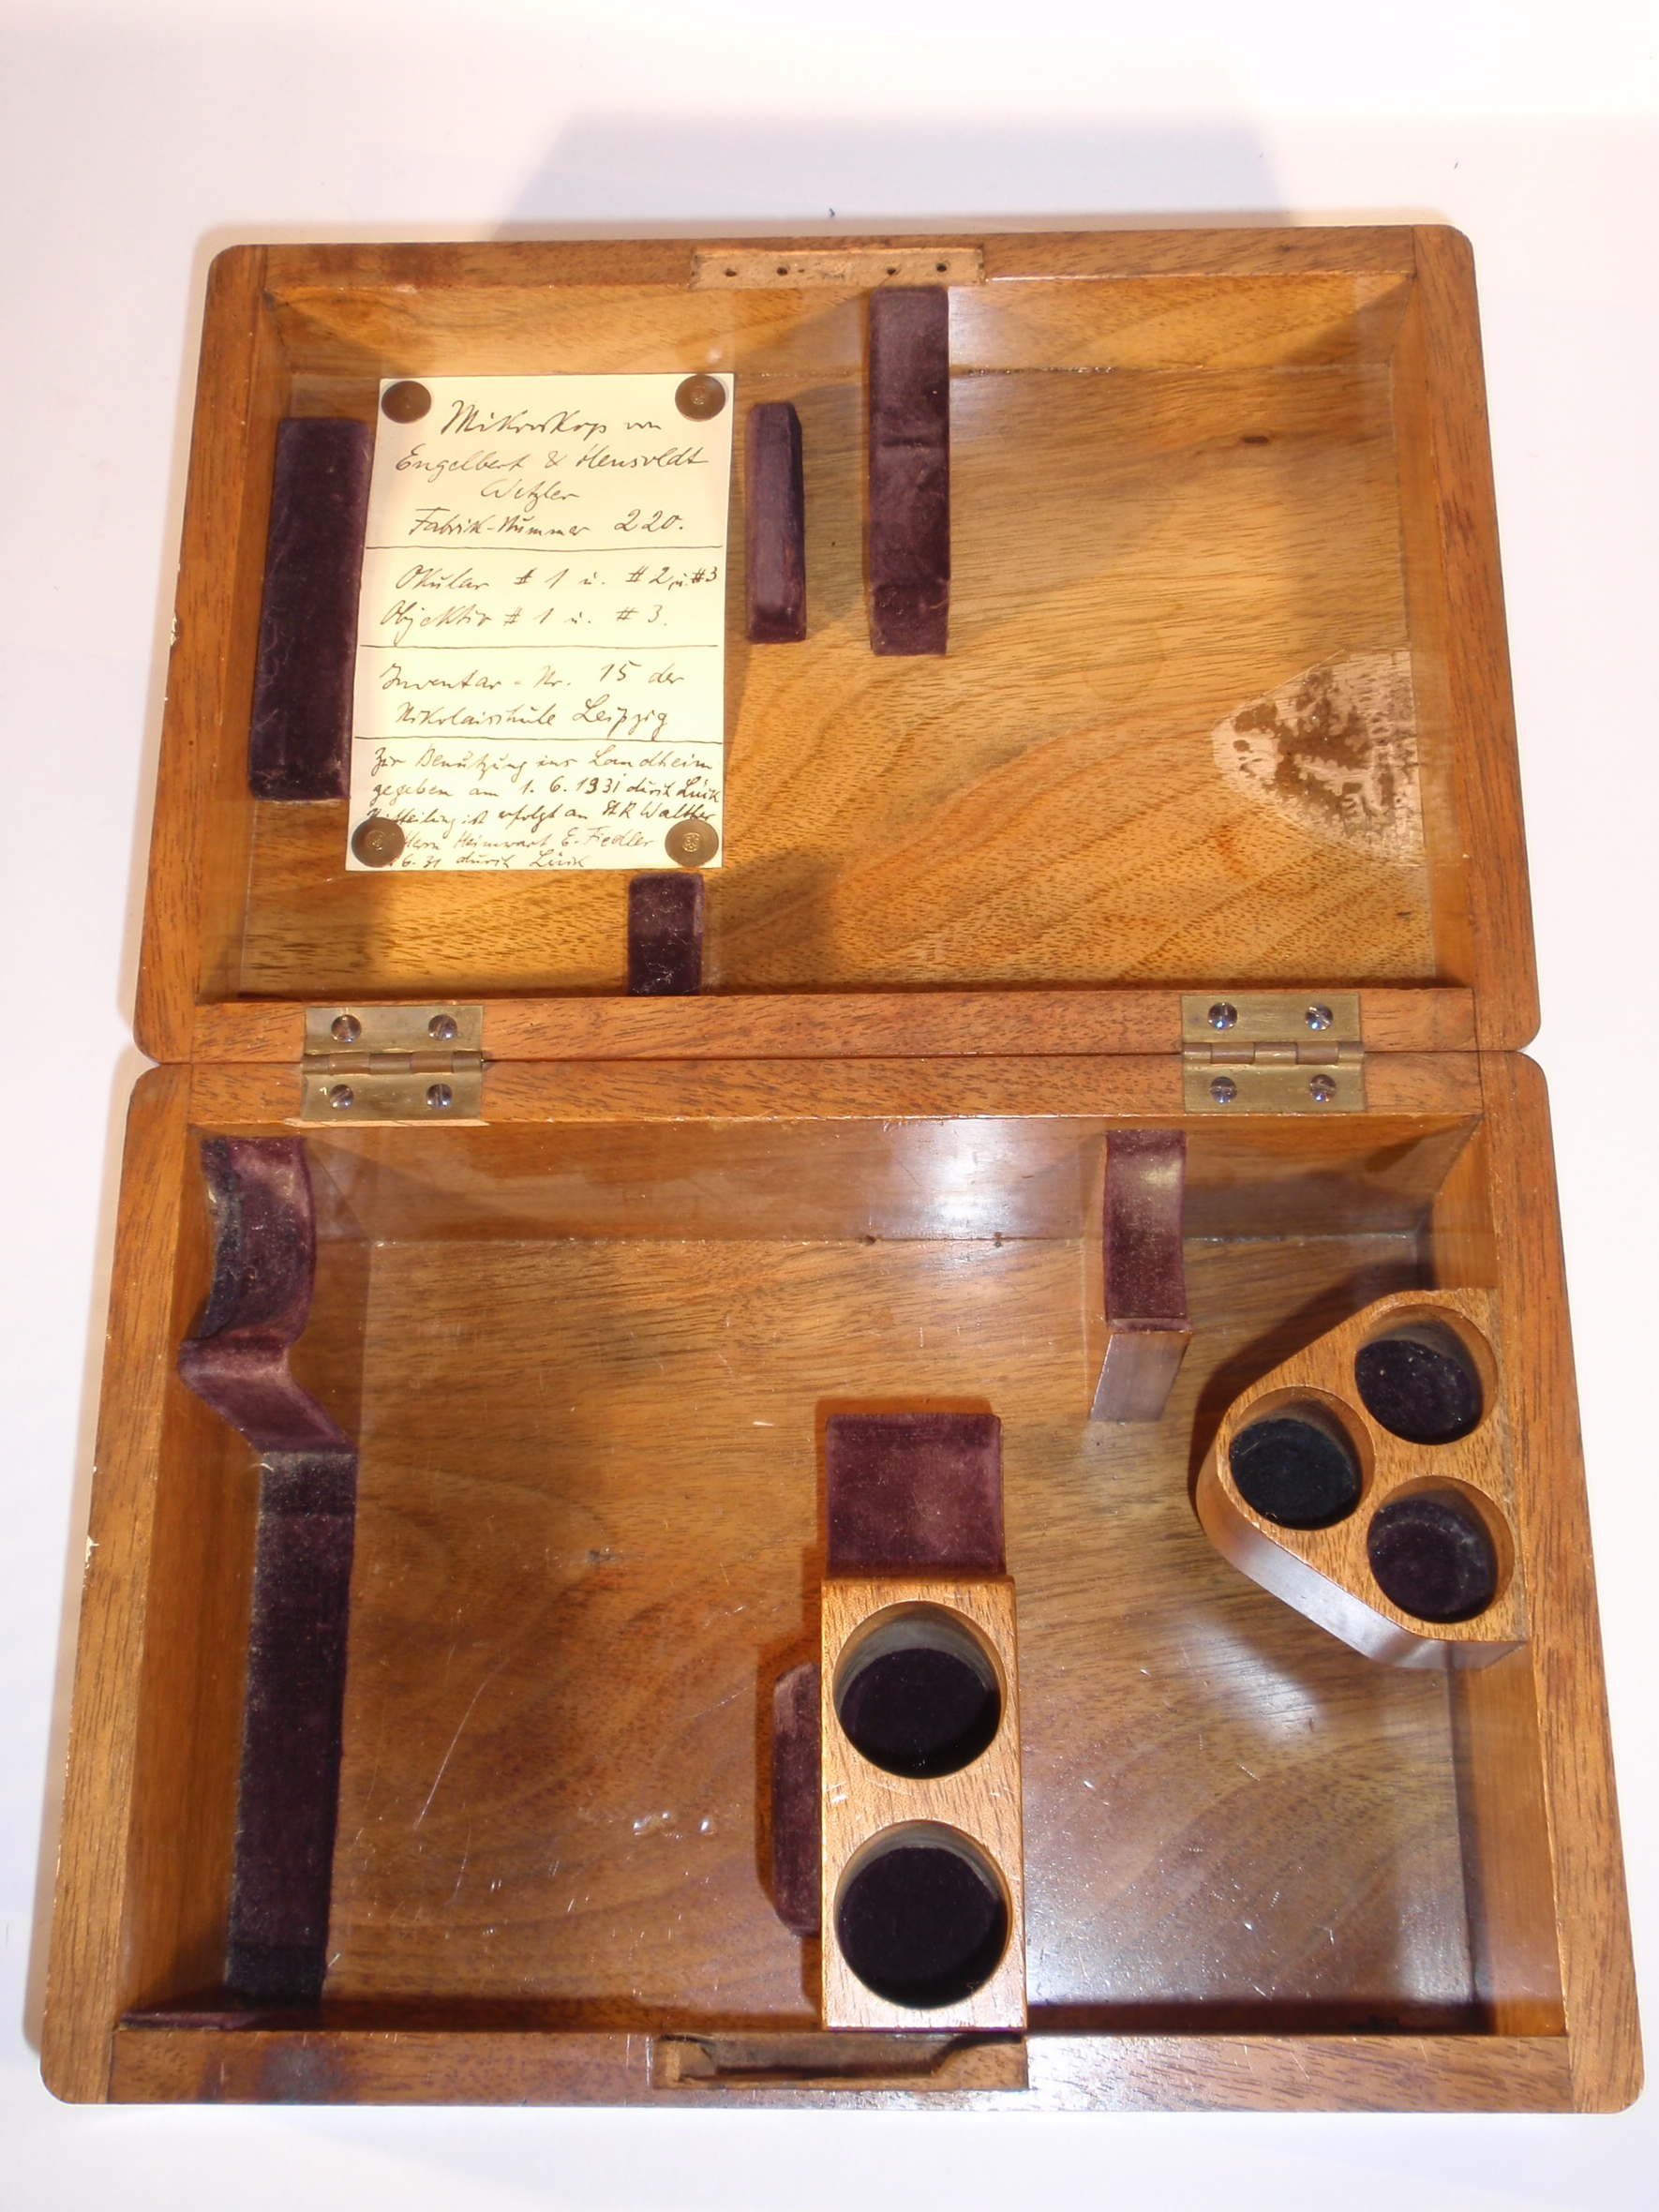 Mikroskop von
Engelbert & Hensoldt
Wetzlar
Fabrik-Nummer 220.
Okular # 1 u. # 2 u. # 3
Objektiv # 1 u. # 3.
Inventar-Nr. 15 der
Nikolaischule Leipzig
Zur Benützung ins Landheim
gegeben am 1. 6. 1931 durch Lück
ist erfolgt an StR Walther
Herrn Heimwart E. Fiedler
6. 31 durch Lück